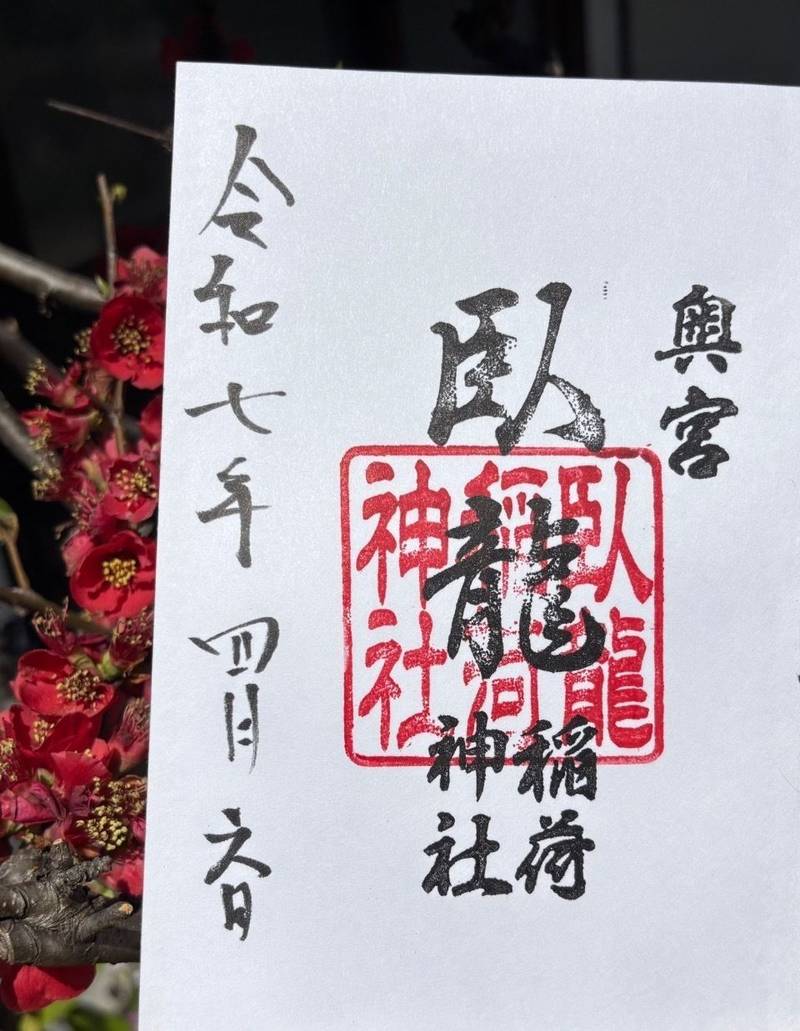 奥宮
臥龍
稲荷
神社
臥龍
稲荷
神社
令和七年四月六日